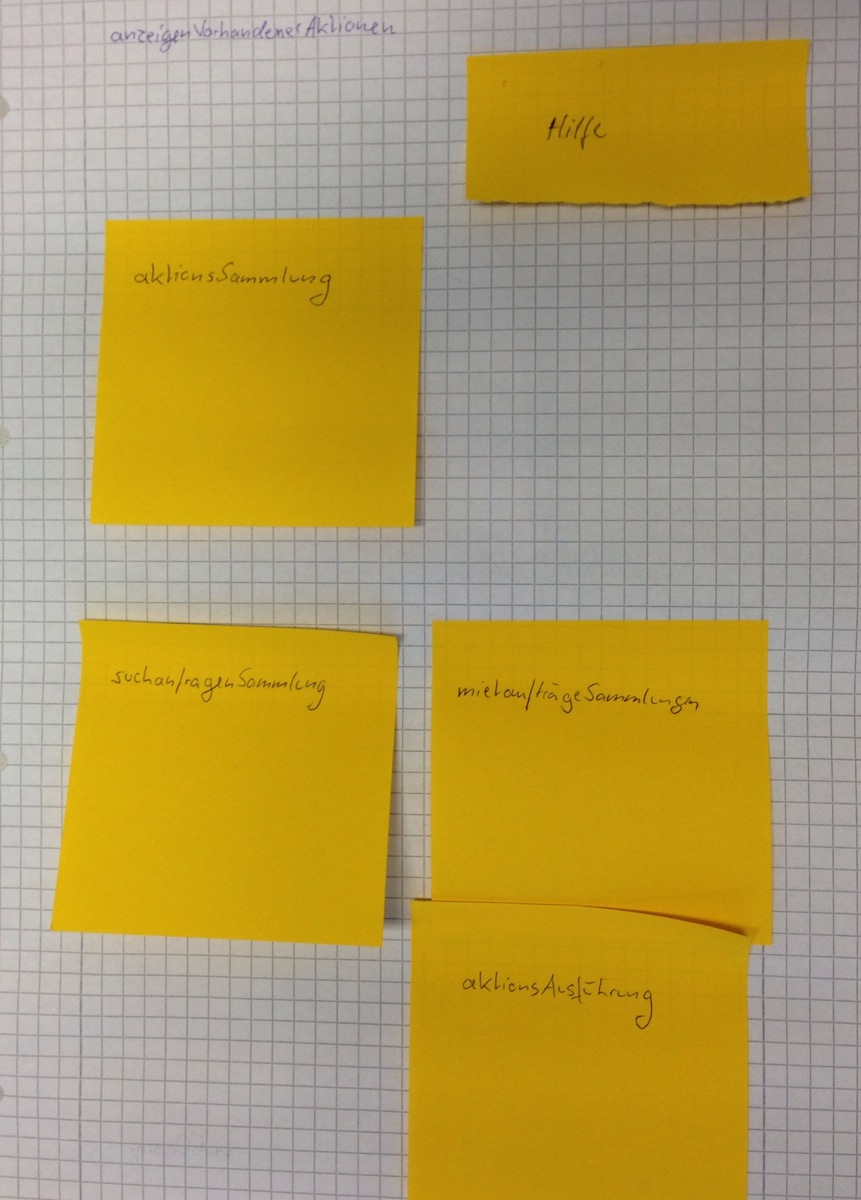 anzeigenVorhandenerAktionen
Hilfe
aktionsSammlung
suchanfragenSammlung
mietaufträgeSammlungen
aktionsAusführung